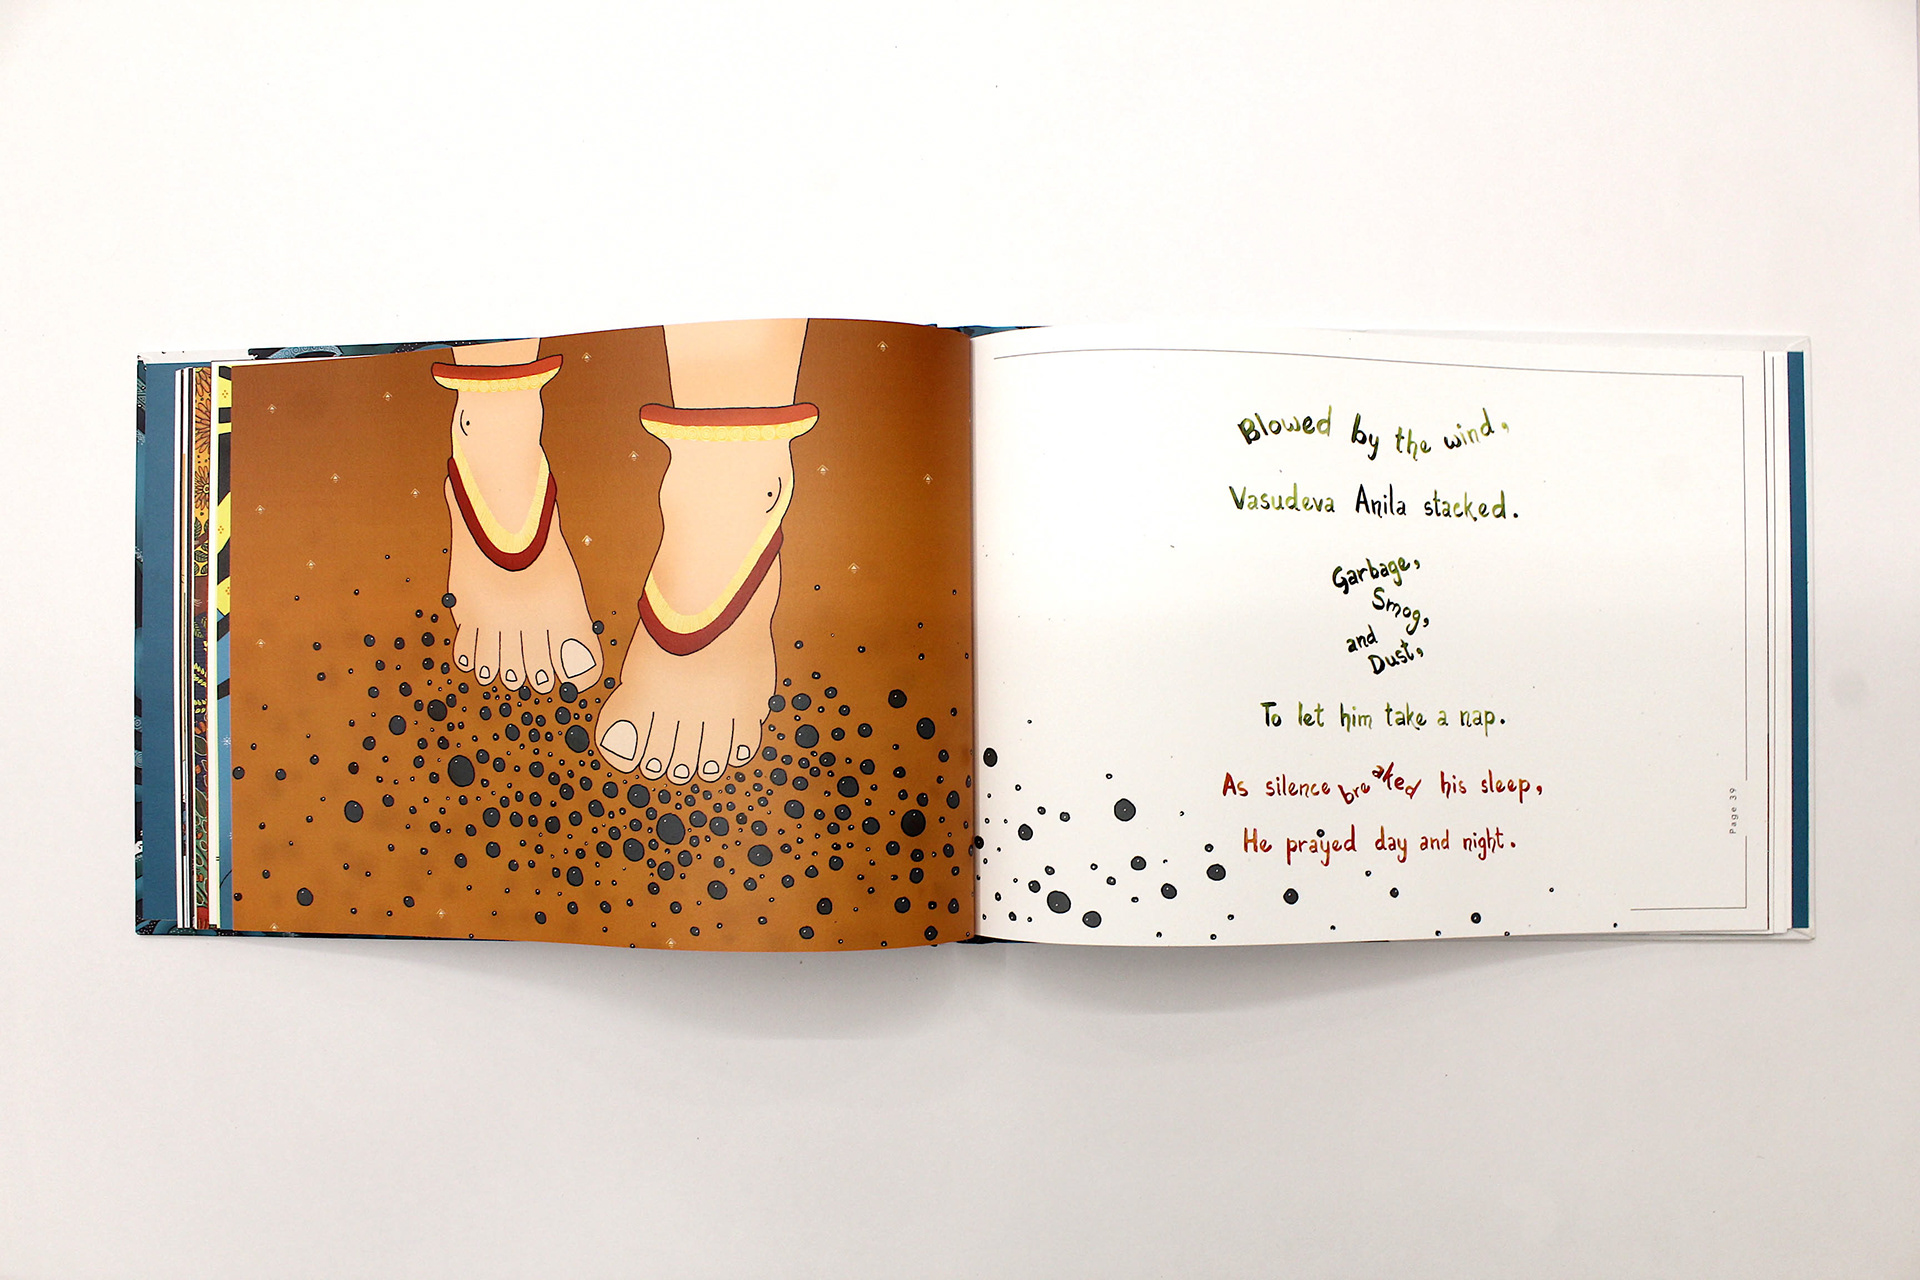 Blowed by the wind,
Vasudeva Anila stacked.
Garbage,
Smog,
and
Dust,
To let him take a nap.
As silence breaked his sleep,
He prayed day and night.
Page 39